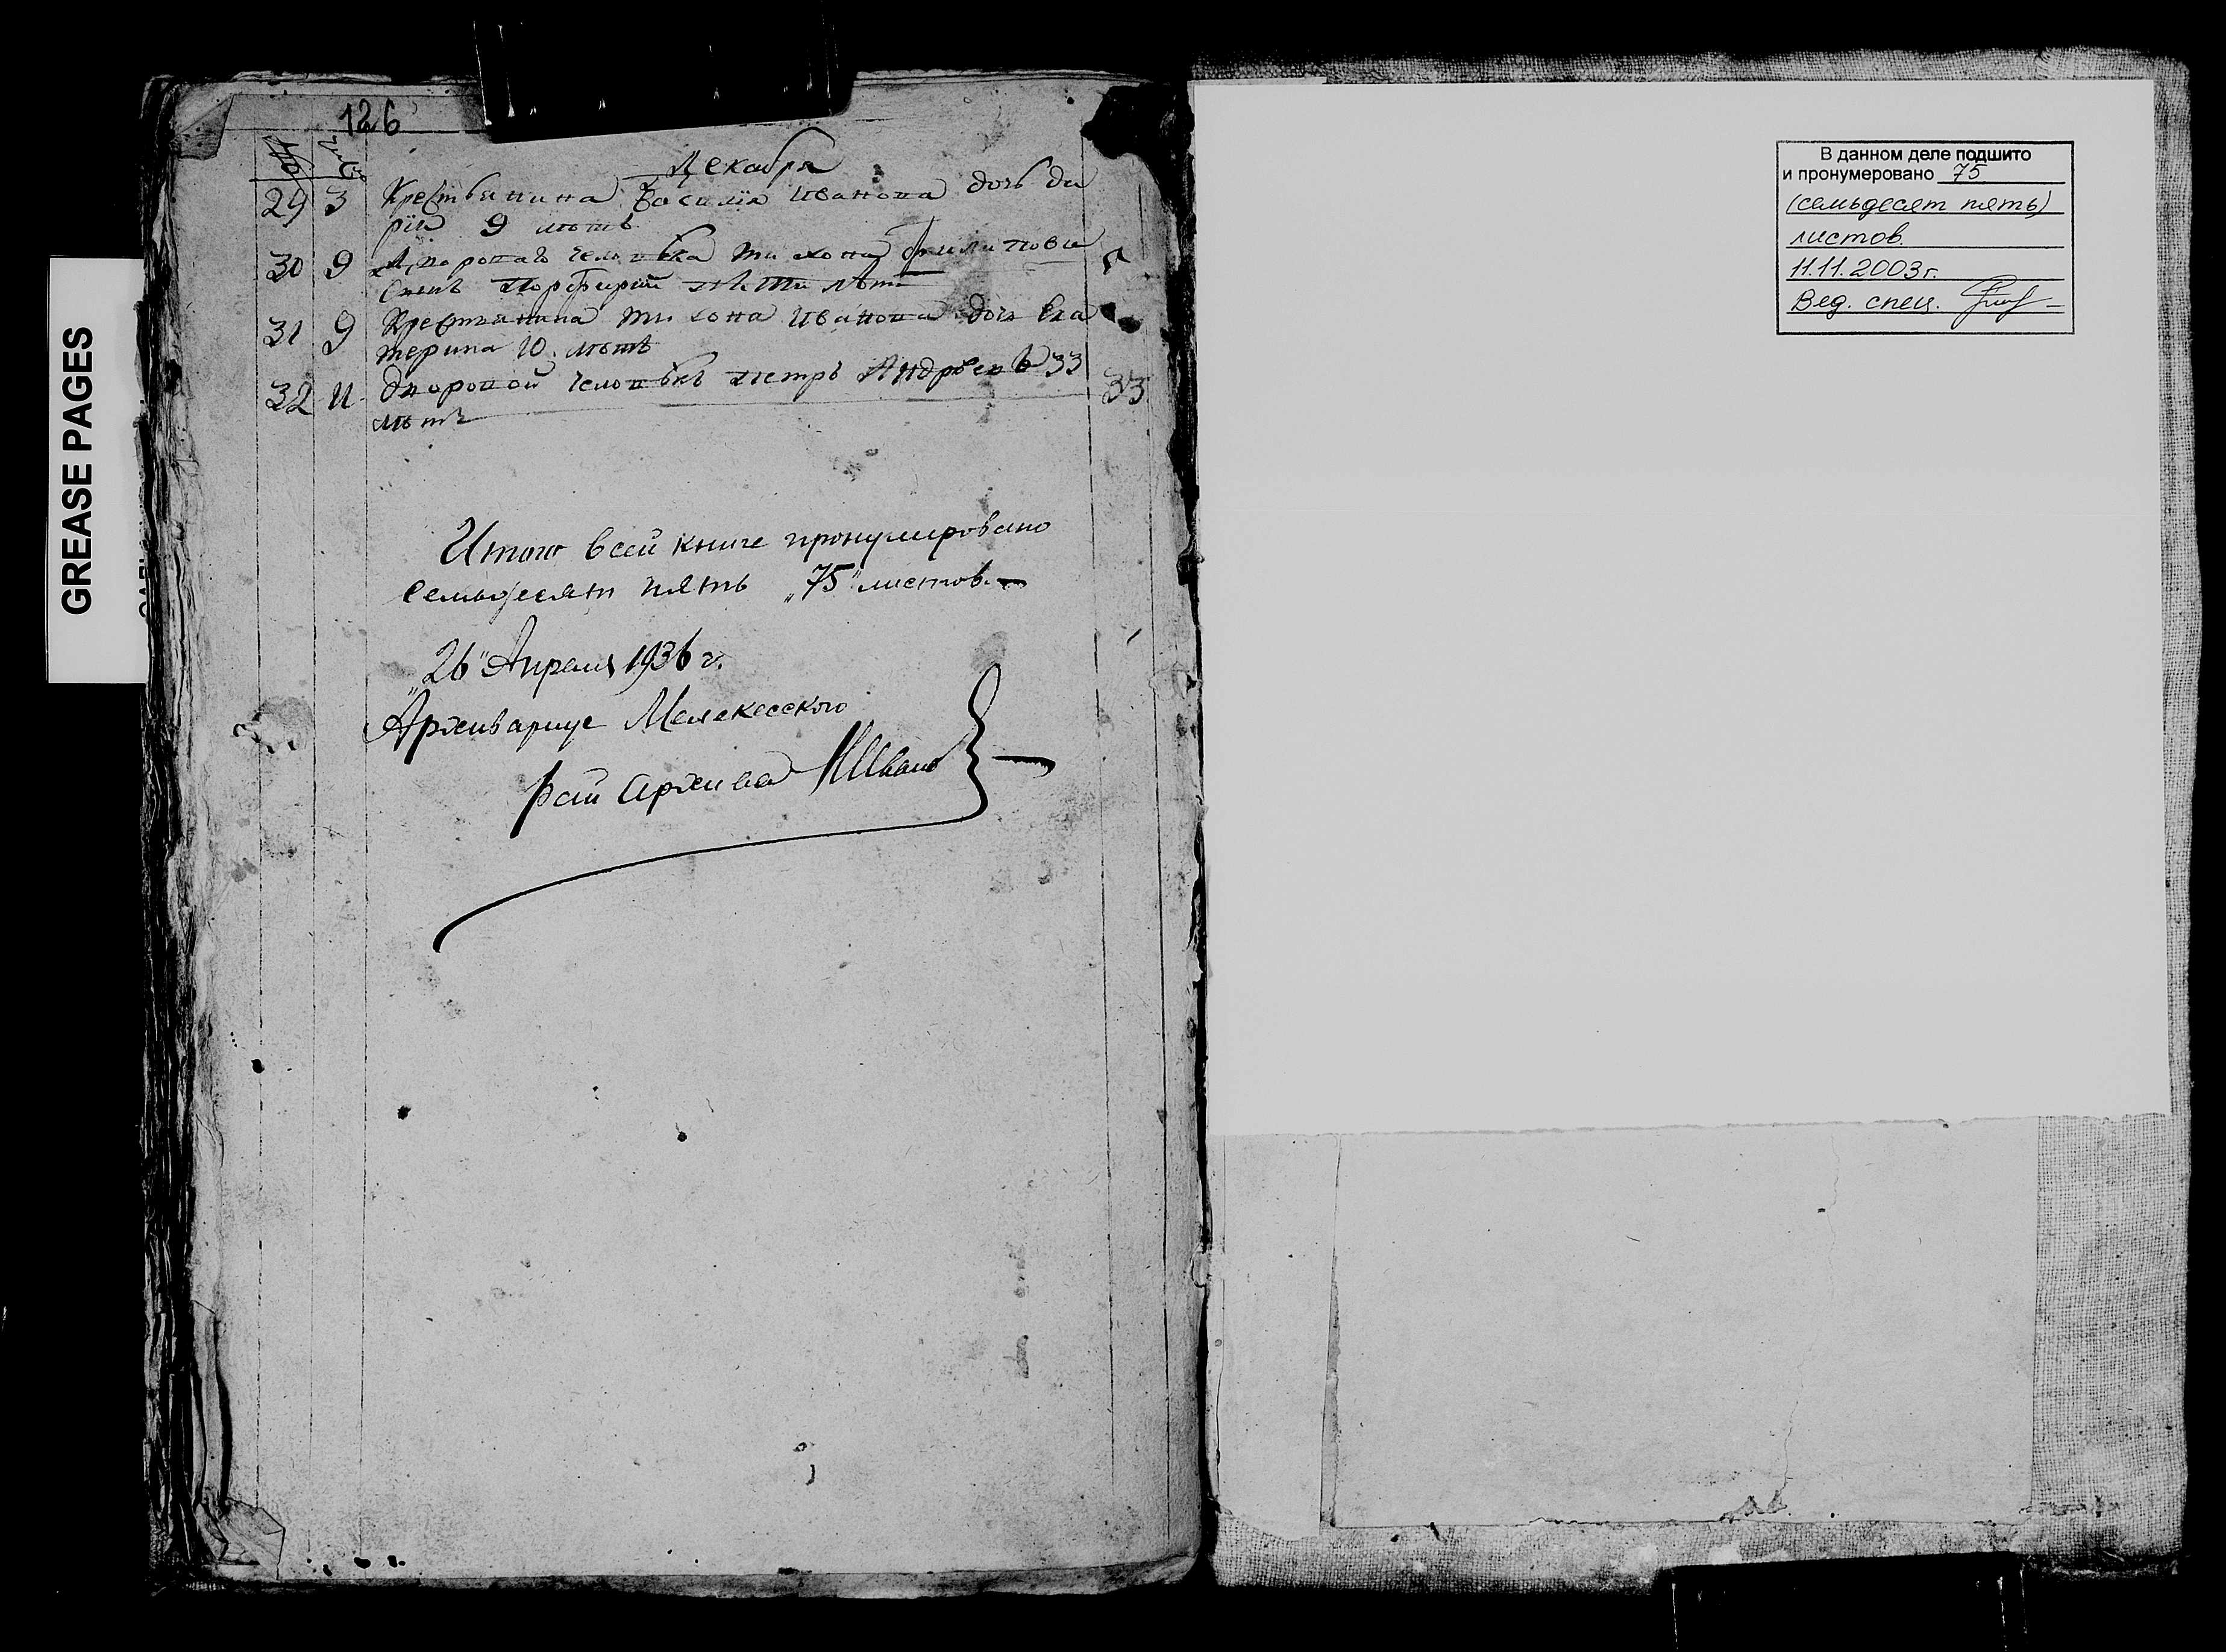 GREASE PAGES
126
Декабря
29 3 Крестьянина Василїя Иванова дочь да
рїя 9 лѣтъ
30 9 Двороваго человѣка тихона филипова
сынъ порфирий лѣтъ
31 9 Крестьянина тихона Иванова дочь Ека
терина 10 лѣтъ
32 11 дворовой человѣкъ петръ Андрѣевъ 33 33
лѣтъ
Итого всей книге пронумировано
семьдесят пять „75" листов.—
„26" Апреля 1936 г.
Архивариус Мелекесского
Рай архива
В данном деле подшито
и пронумеровано 75
(семьдесят пять)
листов.
11.11.2003г.
Вед. спец.